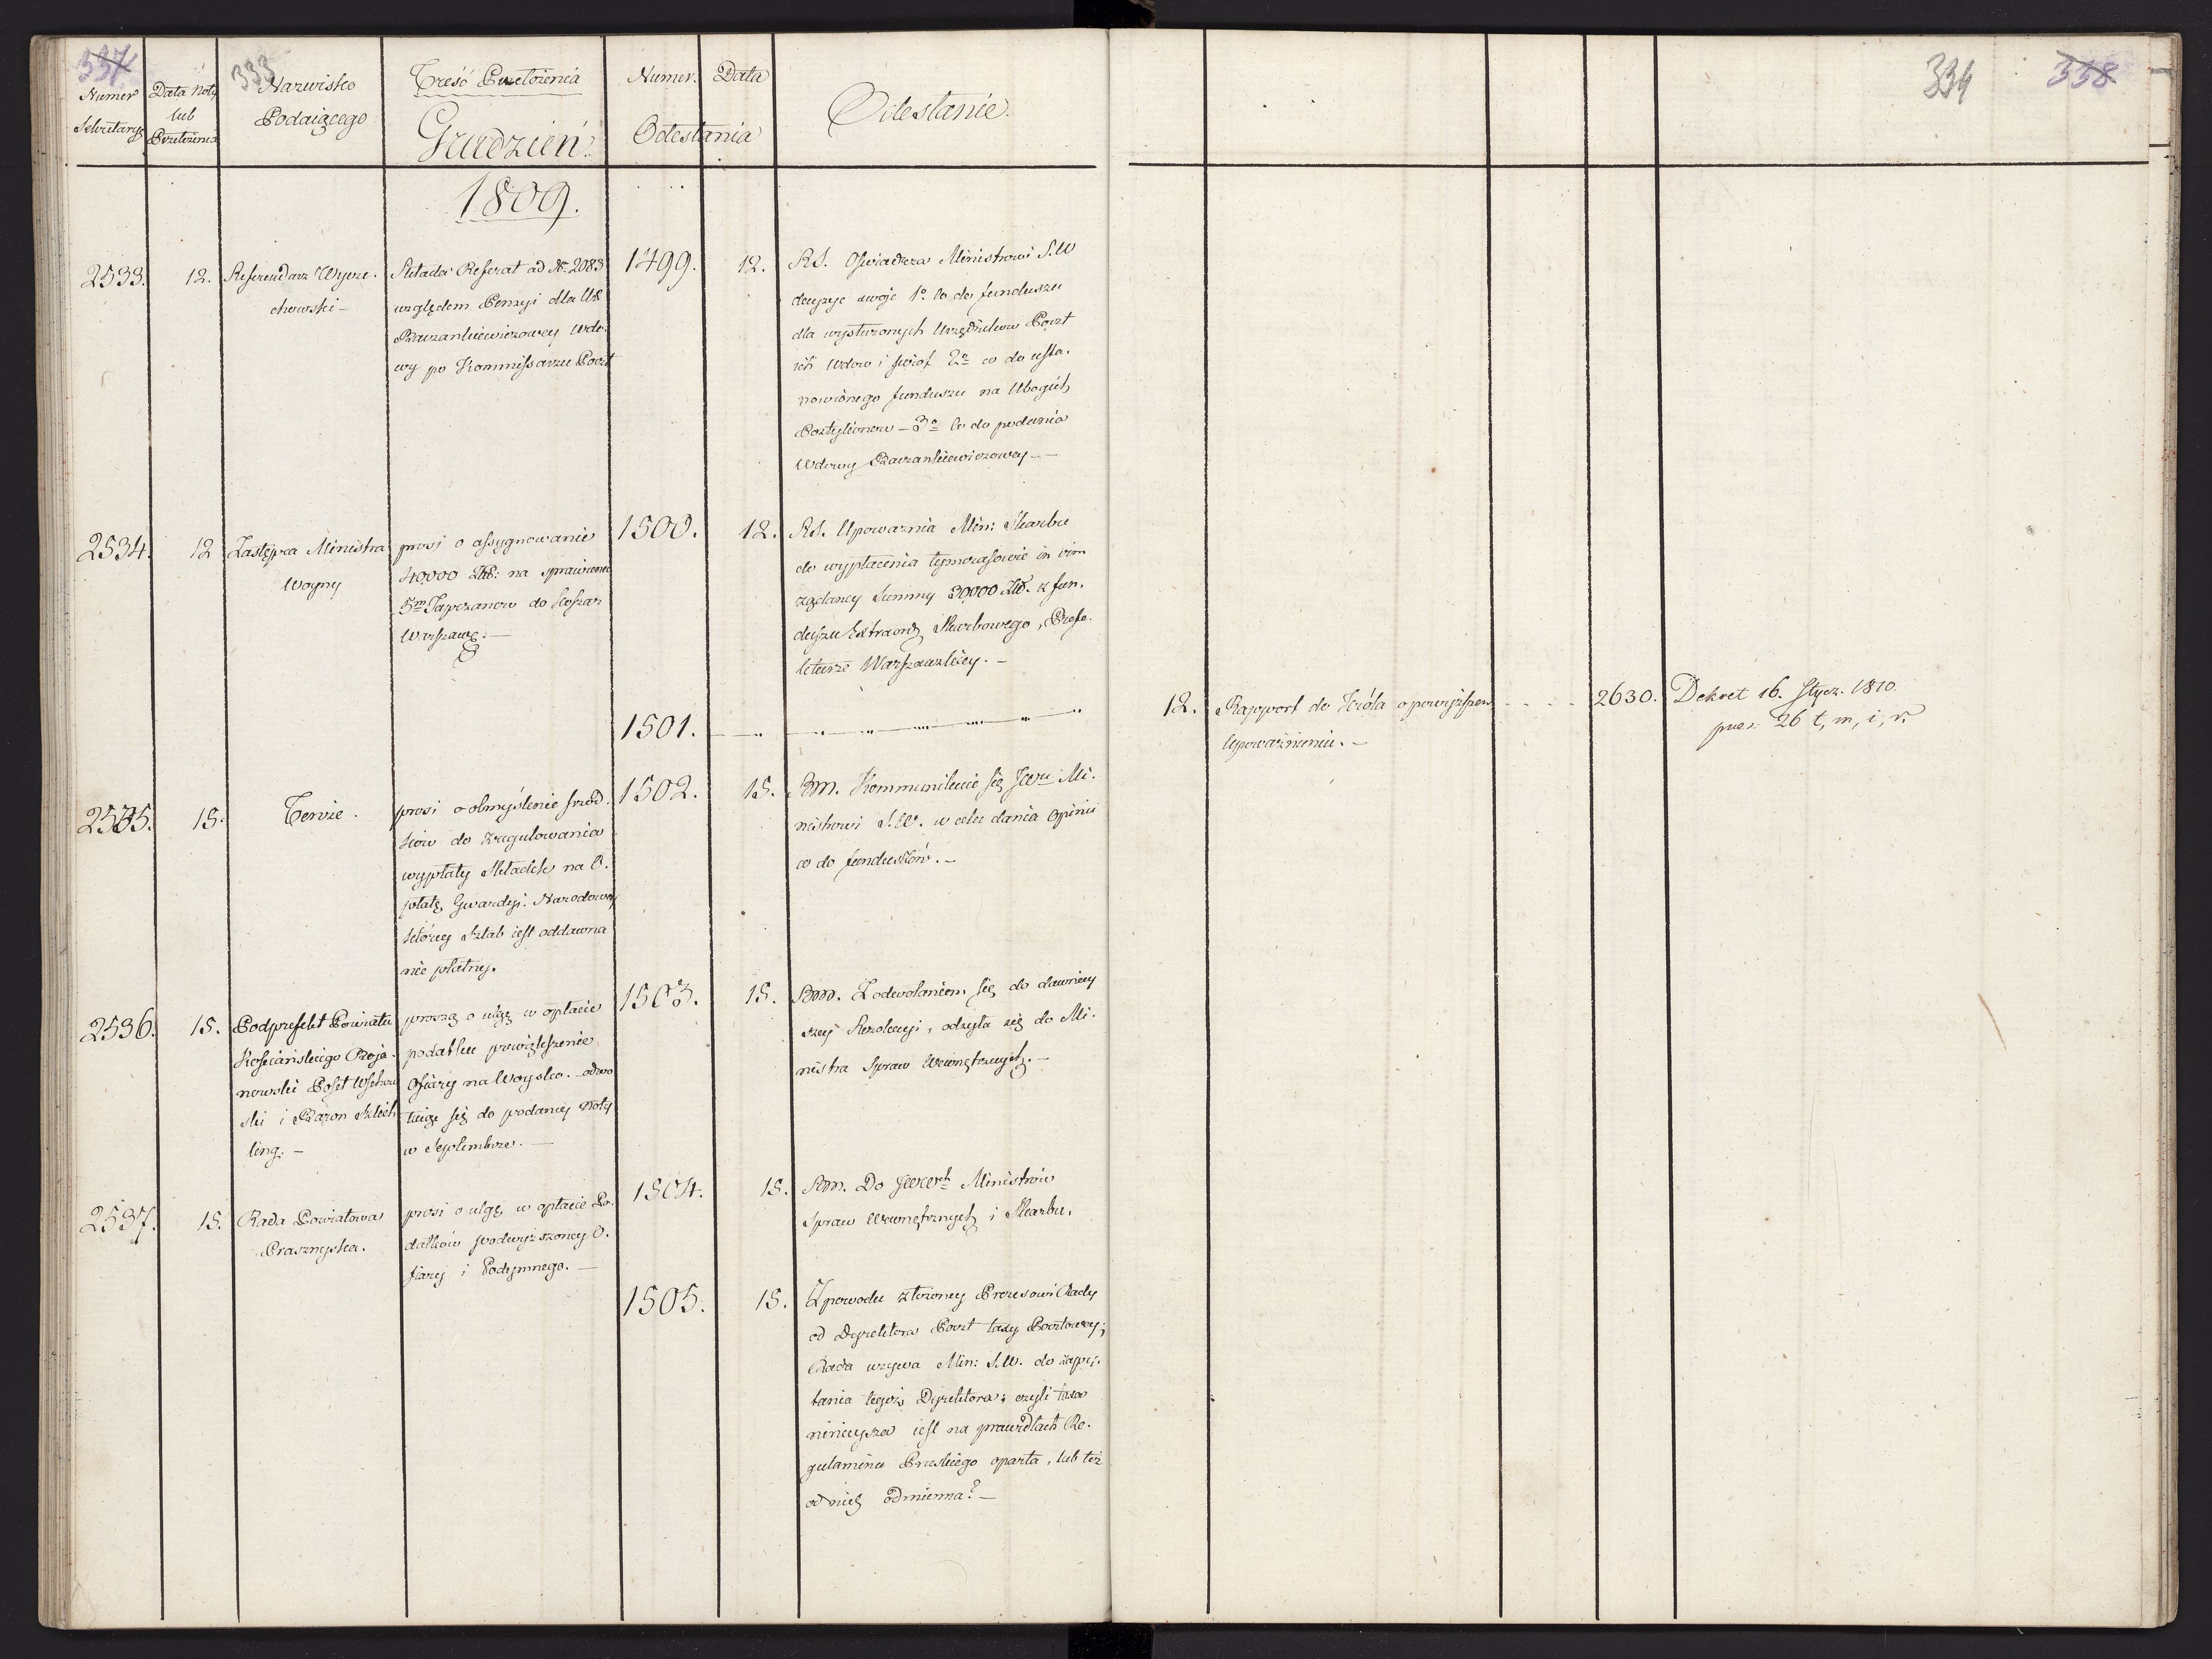 337
333
Numer
Sekretaryi
Data Noty
lub
Przełożenia
Nazwisko
Podaiącego
Treść Przełożenia
Grudzień.
1809.
Numer. Data
Odesłania
Odesłanie.
2533. 12. Referendarz Wyrze-
chowski –
Składa Referat ad N. 2083
względem Pensyi dla Ur.
Barzankiewiczowey Wdo-
wy po Kommissarzu Poczt
1499. 12. RS. Oświadcza Ministrowi S.W
decyzye swoje 1º Co do funduszu
dla wysłużonych Urzędników Poczt
ich Wdow i Sierot 2º co do usta-
nowionego funduszu na Ubogich
Pocztylionow – 3º Co do podania
Wdowy Barzankiewiczowey –
2534. 12 Zastępca Ministra
Woyny
prosi o assygnowanie
40000 Złł: na sprawienie
5m Tapczanow do Koszar
Warszaws. –
1500. 12. RS. Upoważnia Min: Skarbu
do wypłacenia tymczasowie in vim
żądaney Summy 30000 Złł. z fun-
duszu Extraord. Skarbowego, Prefe-
kturze Warszawskiey. –
1501.
2535. 15. Tenże.
prosi o obmyślenie śrzod-
ków do zregulowania
wypłaty Składek na O-
płatę Gwardyi Narodowey
którey Sztab iest oddawna
nie płatny.
1502. 15. Bm. Kommunikuie się JWu Mi-
nistrowi S.W. w celu dania Opinii
co do funduszów. –
2536. 15. Podprefekt Powiatu
Kościańskiego Roja-
nowski Poseł Wschow-
ski i Baron Szlich-
ling. –
proszą o ulgę w opłacie
podatku powiększenie
Ofiary na Woysko. – odwo-
łuią się do podaney Noty
w Septembrze. –
1503. 15. Bm. Z odwołaniem się do dawniey-
szey Rezolucyi, odsyła się do Mi-
nistra Spraw Wewnętrznych. –
2537. 15. Rada Powiatowa
Prasznyska.
prosi o ulgę w opłacie Po-
datków podwyższoney O-
fiary i Podymnego. –
1504. 15. Bm. Do JWW Ministrów
Spraw Wewnętrznych i Skarbu.
1505. 15. Z powodu złożoney Prezesowi Rady
od Dyrektora Poczt taxy Pocztowey;
Rada wzywa Min: S.W. do zapy-
tania tegoż Dyrektora; czyli taxa
ninieysza iest na prawidłach Re-
gulaminu Pruskiego oparta, lub też
od nich odmienna? –
334
338
12. Rapport do Króla o powyższem
Upoważnieniu. –
2630. Dekret 16. Stycz. 1810.
prez. 26 t, m, i, r.